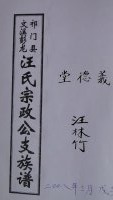 祁门县
文溪彭龙
汪氏宗政公支族谱
義德堂
汪林竹